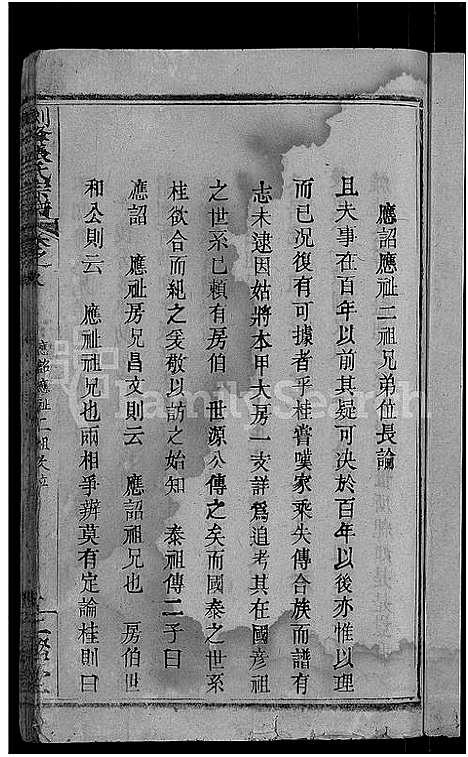 應詔應祉二祖兄弟位長論
且夫事在百年以前其疑可決於百年以後亦惟以理
而已況復有可據者乎桂嘗嘆家乘失傳合族而譜有
志未逮因姑將本甲大房一支詳爲追考其在國彥祖
之世系已賴有房伯 世源公傳之矣而國泰之世系
桂欲合而紀之爰敬以訪之始知 泰祖傳二子曰
應詔 應祉房兄昌文則云 應詔祖兄也 房伯世
和公則云 應祉祖兄也兩相爭辨莫有定論桂則曰
應詔應祉二祖
FamilySearch